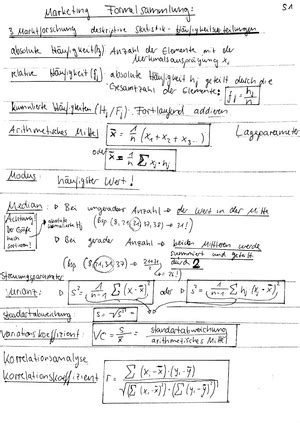 Marketing Formelsammlung: S1
3 Marktforschung deskriptive Statistik - Häufigkeitsverteilungen
absolute Häufigkeit (hj) Anzahl der Elemente mit der
Merkmalsausprägung xj
relative Häufigkeit (fj) absolute Häufigkeit hj geteilt durch die
Gesamtanzahl der Elemente: fj = hj/n
kumulierte Häufigkeiten (Hj/Fj) Fortlaufend addieren
Arithmetisches Mittel x̄ = 1/n (x1 + x2 + x3 ...) Lageparameter
oder x̄ = 1/n ∑ xj · hj
Modus: häufigster Wert!
Median: Bei ungerader Anzahl → der Wert in der Mitte
Achtung! Der Größe nach sortieren!
(Bsp (8, 21, 31, 32, 38) → 31!)
Bei gerader Anzahl → beiden Mittleren werde
summiert und geteilt
durch 2
Streuungsparameter
Varianz: s² = 1/n-1 ∑ (xi - x̄)² oder s² = 1/n-1 ∑ hj (xj - x̄)²
Standardabweichung: s = √s²
Variationskoeffizient: VC = s/x̄ = standardabweichung / arithmetisches Mittel
Korrelationsanalyse
Korrelationskoeffizient r = ∑ (xi - x̄) · (yi - ȳ) / √(∑ (xi - x̄)² · ∑ (yi - ȳ)²)